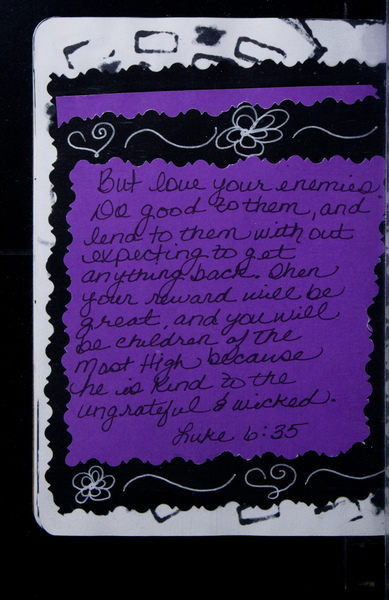 But love your enemies.
Do good to them, and
lend to them with out
expecting to get
anything back. Then
your reward will be
great, and you will
be children of the
Most High because
he is kind to the
ungrateful & wicked.
Luke 6:35